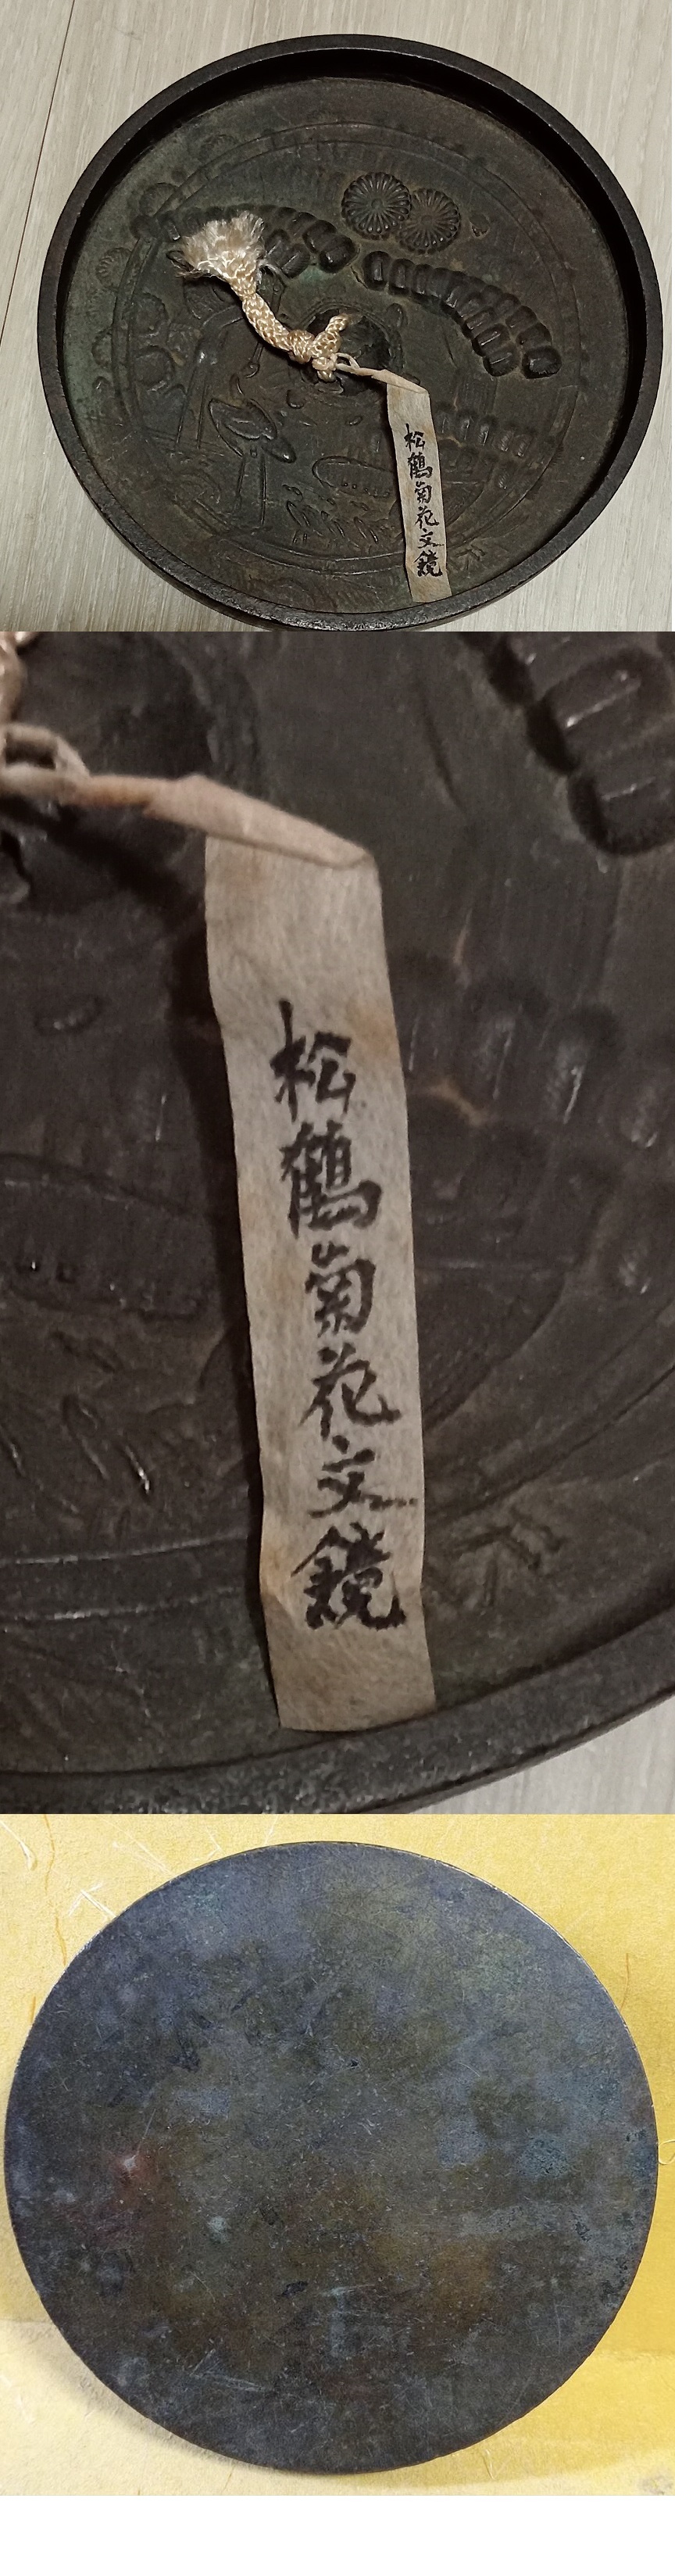 松鶴菊花文鏡
松鶴菊花文鏡